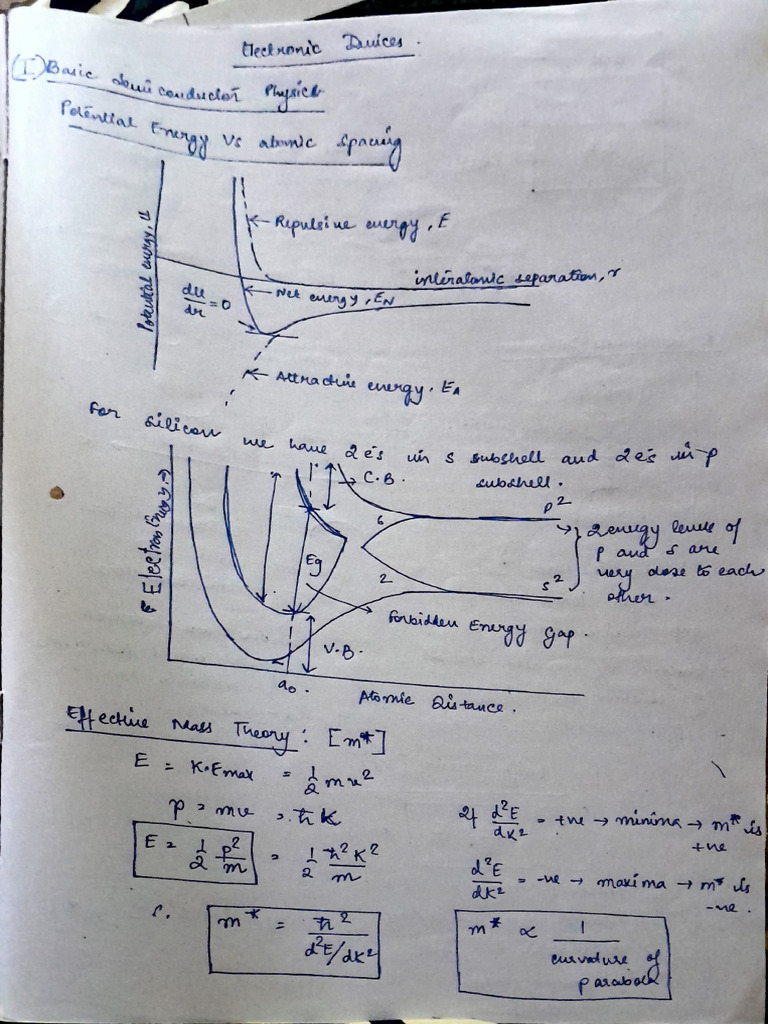 Electronic Devices.
(I) Basic Semiconductor Physics
Potential Energy Vs atomic spacing
Potential energy, U
← Repulsive energy, E
interatomic separation, r
← Net energy, E_N
dU/dr = 0
← Attractive energy, E_A
For silicon we have 2e's in s subshell and 2e's in p
subshell.
→ C.B.
Electron Energy →
p²
6
Eg
2
s²
→ 2 energy levels of
p and s are
very close to each
other.
Forbidden Energy Gap.
V.B.
a₀.
Atomic Distance.
Effective Mass Theory: [m*]
E = K.Emax = 1/2 mv²
p = mv = ħK
E = 1/2 p²/m = 1/2 ħ²K²/m
∴ m* = ħ²/d²E/dK²
If d²E/dK² = +ve → minima → m* is
+ve
d²E/dK² = -ve → maxima → m* is
-ve.
m* ∝ 1/curvature of
parabola